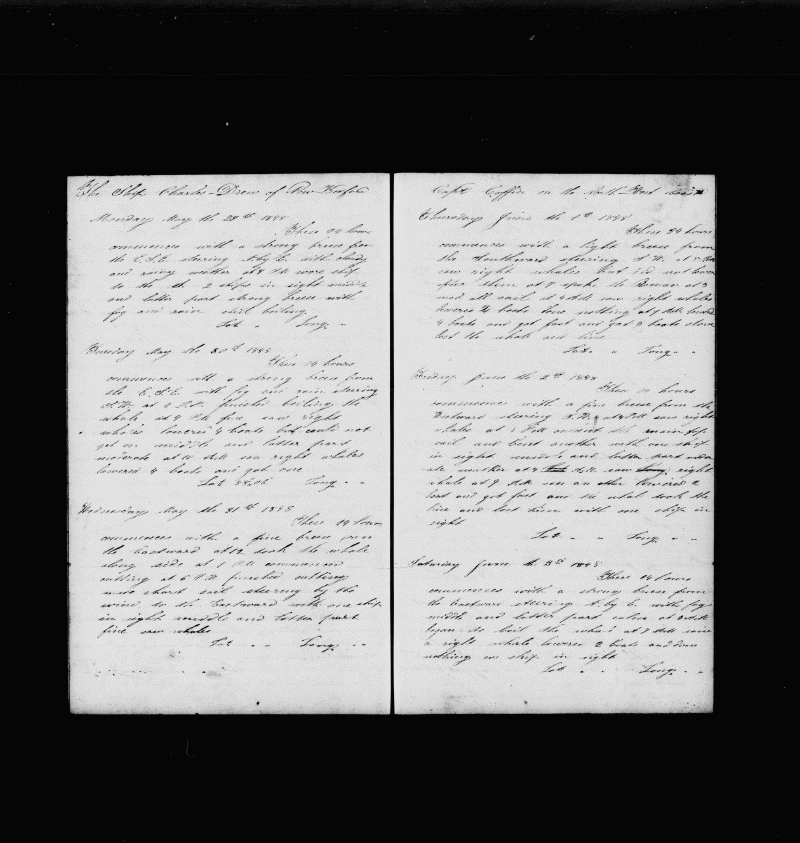 The Ship Charles Drew of New Bedford
Monday May the 28th 1848
These 24 hours
commences with a strong breeze from
the E.S.E. steering N.by E. with cloudy
and rainy weather at 8 P.M. wore ship
to the 2 ships in sight middle
and latter part strong breeze with
fog and rain still boiling
Lat " Long "
Tuesday May the 30th 1848
These 24 hours
commences with a strong breeze from
the E.S.E. with fog and rain steering
at 2 P.M. finished boiling the
whale at 4 P.M. saw right
whales lowered 4 boats but could not
get on middle and latter part
moderate at 10 A.M. saw right whales
lowered 4 boats and got one
Lat Long " "
Wednesday May the 31st 1848
These 24 hours
commences with a fine breeze from
the Eastward at 12 took the whale
along side at 1 P.M. commenced
cutting at 6 P.M. finished cutting
made short sail steering by the
wind to the Eastward with one ship
in sight middle and latter part
fine saw whales
Lat " " Long " "
Capt Coffin on the North West coast
Thursday June the 1st 1848
These 24 hours
commences with a light breeze from
the Southward steering at 5 P.M.
saw right whales but did not lower
after them at 7 spoke the at 3
made all sail at 3 A.M. saw right whales
lowered boats done nothing at 9 A.M. lowered
4 boats and got fast and got 2 boats stove
lost the whale and line
Lat " " Long " "
Friday June the 2nd 1848
These 24 hours
commences with a fine breeze from the
Eastward steering at P.M. saw right
whales at P.M. main top
sail and another with one ship
in sight middle and latter part
weather at 4 A.M. saw right
whale at 9 A.M. saw an other lowered 2
boat and got fast and the whale took the
line and lost him with one ship in
sight
Lat " " Long " "
Saturday June the 3rd 1848
These 24 hours
commences with a strong breeze from
the Eastward steering N.by E. with fog
middle and latter part calm at 3 A.M.
began to boil the whale at 7 A.M. saw
a right whale lowered 2 boats and done
nothing one ship in sight
Lat " " Long " "